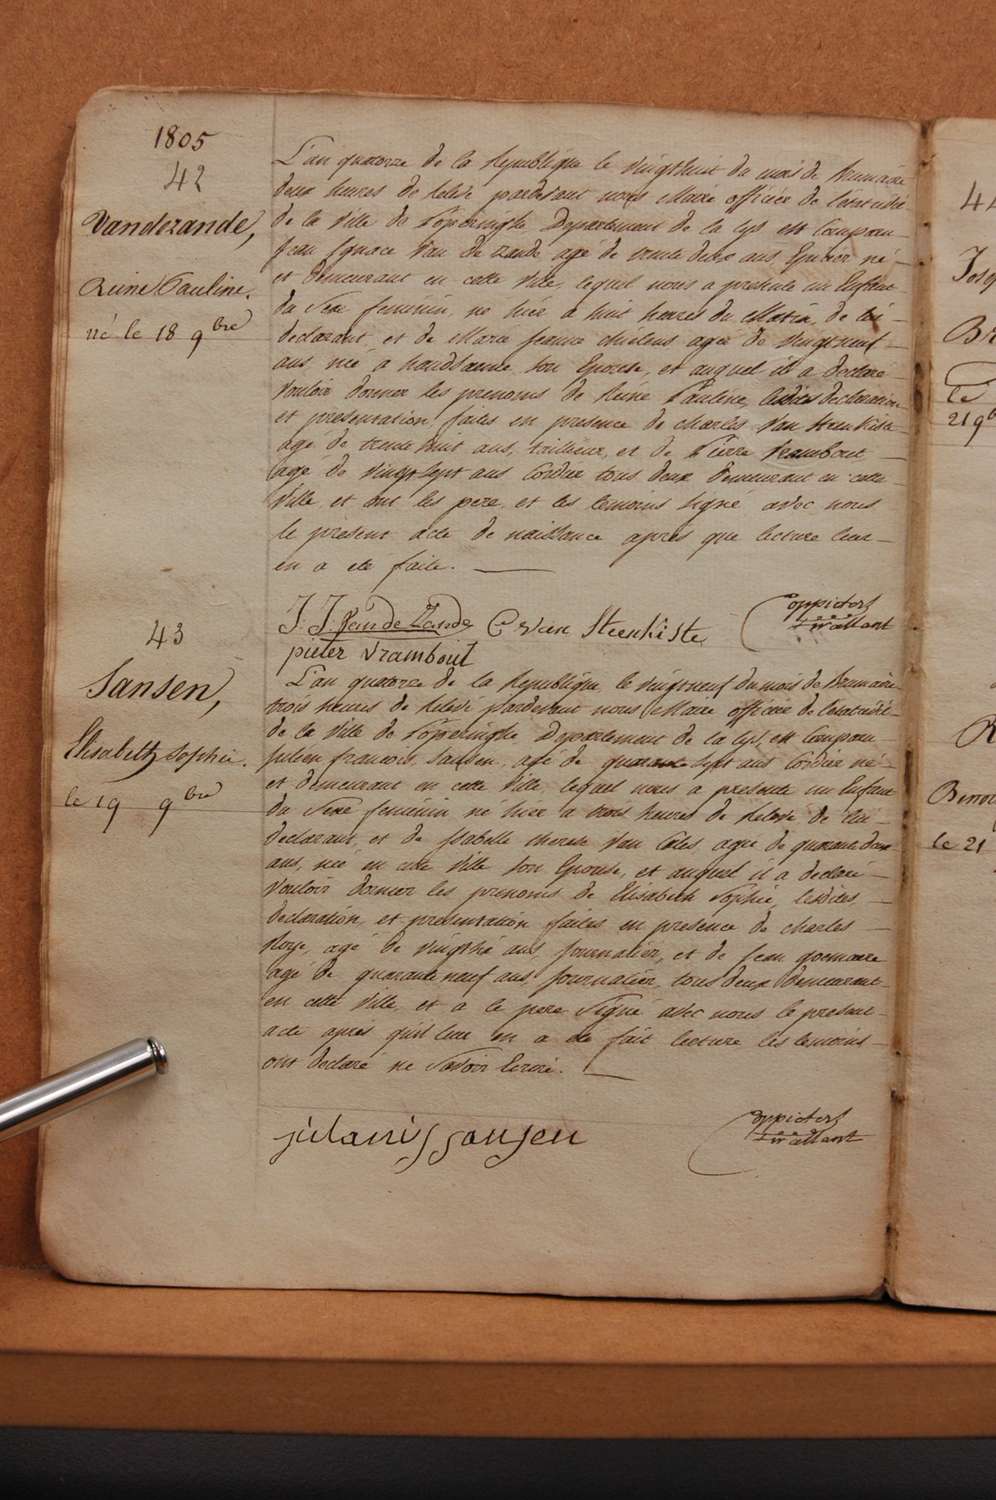 1805
42
Vandezande,
Reine Pauline.
né le 18 9bre
L'an quatorze de la Republique le vingthuit du mois de Brumaire
deux heures de relevé pardevant nous Maire officier de l'etat civil
de la Ville de Poperinghe Departement de la Lys est comparu
Jean Ignace Van de Zande agé de trente deux ans Epicier né
et demeurant en cette Ville, lequel nous a presenté un Enfant
du Sexe feminin, né hier a huit heures du Matin, de lui
declarant, et de Marie Jeanne agée de vingtneuf
ans, née a son Epouse, et auquel il a declaré
vouloir donner les prenoms de Reine Pauline, lesdites declaration
et presentation faites en presence de Charles Van Steenkiste
agé de trente huit ans, tailleur, et de Pierre Vrambout
agé de vingt sept ans Cordier tous deux demeurant en cette
Ville, et ont les pere et les temoins signé avec nous
le present acte de naissance apres que lecture leur
en a eté faite.
J. J. Van de Zande C van Steenkiste
pieter vrambout
43
Jansen,
Elisabeth Sophie.
le 19 9bre
L'an quatorze de la Republique, le vingtneuf du mois de Brumaire
trois heures de relevé pardevant nous Maire officier de l'etat civil
de la Ville de Poperinghe Departement de la Lys, est comparu
Julien francois Jansen, agé de quarante sept ans Cordier né
et demeurant en cette Ville, lequel nous a presenté un Enfant
du Sexe feminin né hier a trois heures de Relevé de lui
declarant, et de Isabelle therese Van agée de quarante deux
ans, née en cette Ville son Epouse, et auquel il a declaré
vouloir donner les prenoms de Elisabeth Sophie, lesdites
declaration et presentation faites en presence de Charles
agé de ans, Journalier, et de Jean
agé de quarante neuf ans Journalier, tous deux demeurant
en cette Ville, et a le pere Signé avec nous le present
acte apres qu'il leur en a eté fait lecture les temoins
ont declaré ne Savoir Ecrire.
Jansen
44
le
219b
R
le 21